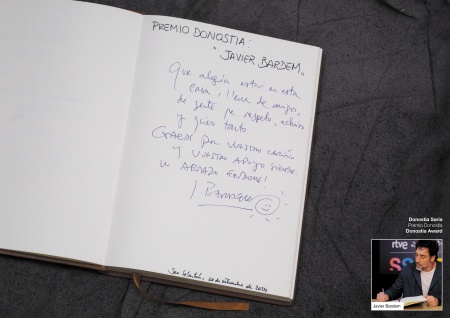 PREMIO DONOSTIA:
"JAVIER BARDEM"
Que alegría estar en esta
casa, llena de amigos,
de gente que respeto, admiro
y quiero tanto.
GRACIAS POR VUESTRO CARIÑO
Y VUESTRO APOYO SIEMPRE.
UN ABRAZO ENORME!
J. BARDEM
San Sebastián, 20 de setiembre de
Donostia Saria
Premio Donostia
Donostia Award
rtve
SS
Javier Bardem